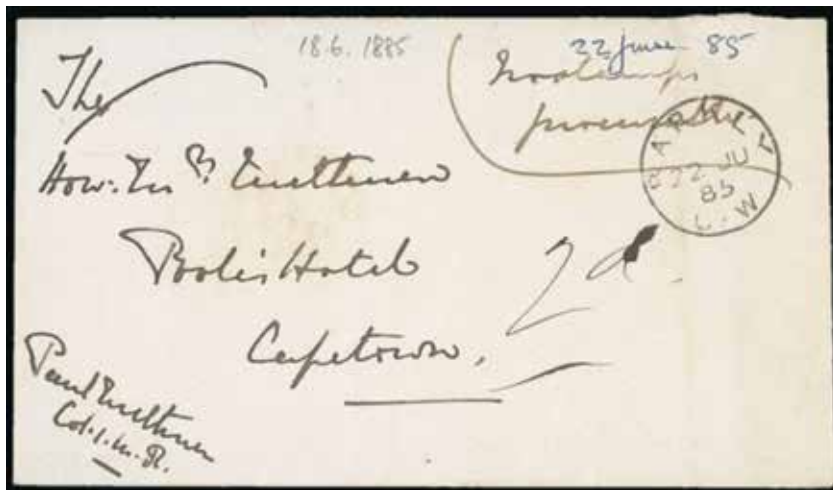 18.6.1885
22 June 85
No stamps
procurable
22 JU
85
The
Hon: Mrs. Methuen
Poole's Hotel
2d.
Capetown.
Paul Methuen
Col. 1. M. R.